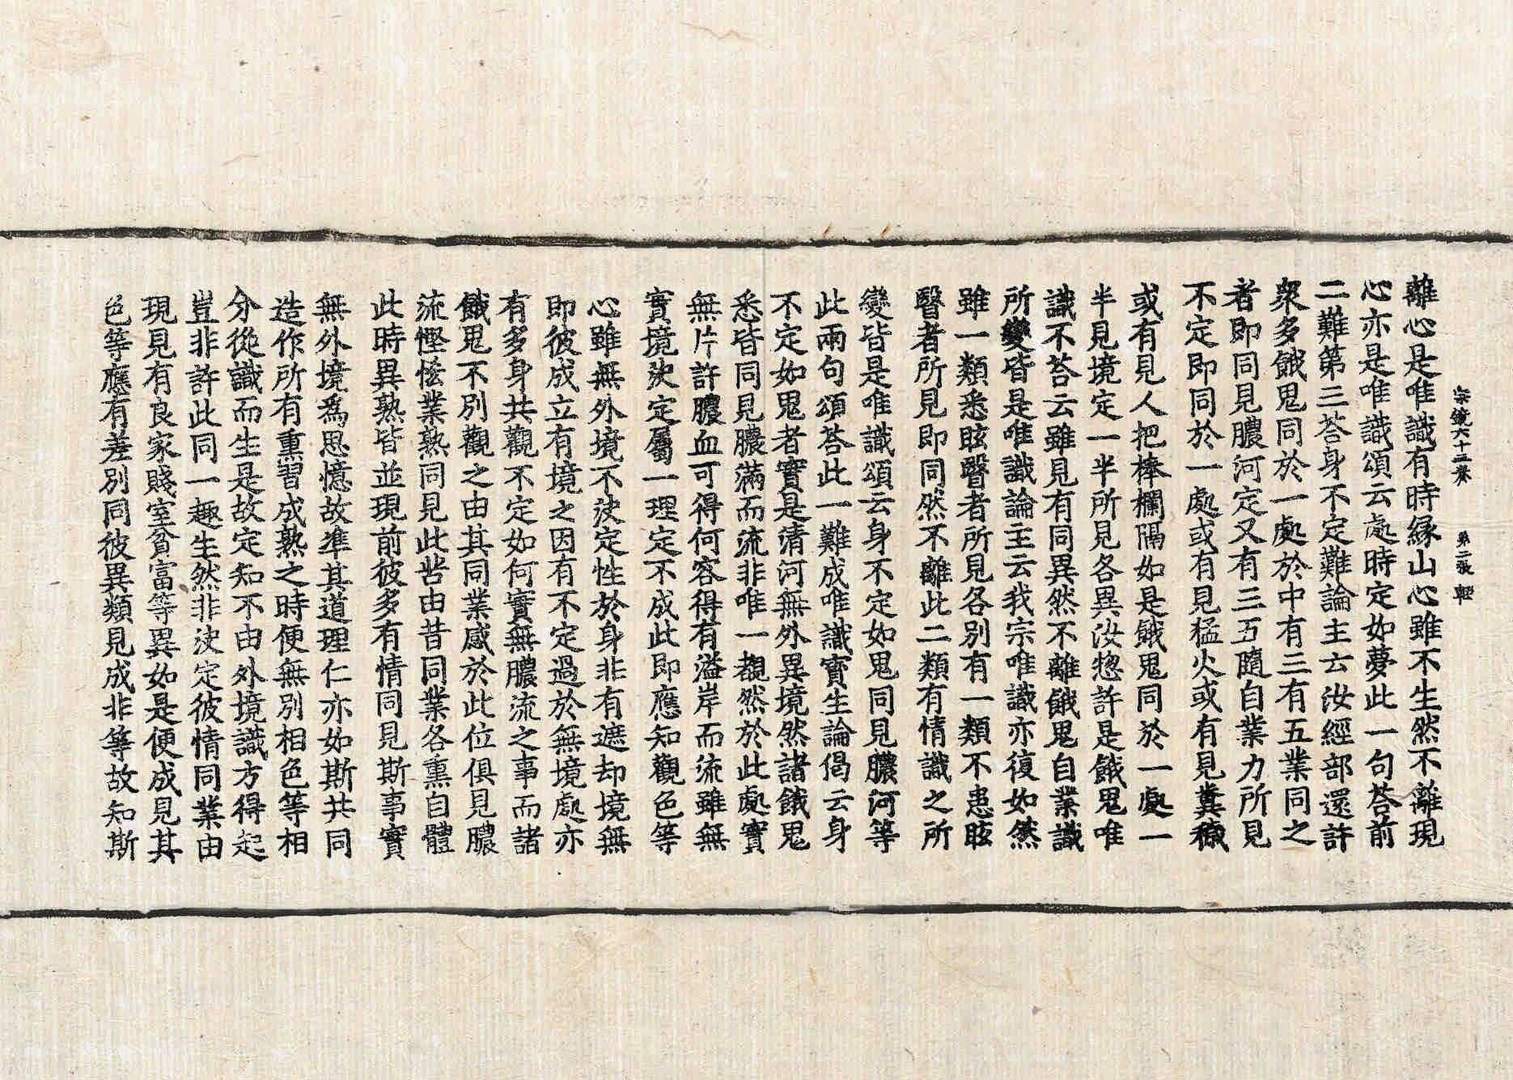 宗鏡六十三卷 第二張 輕
離心是唯識有時緣山心雖不生然不離現
心亦是唯識頌云處時定如夢此一句荅前
二難第三荅身不定難論主云汝經部還許
衆多餓鬼同於一處於中有三有五業同之
者即同見膿河定又有三五隨自業力所見
不定即同於一處或有見猛火或有見糞穢
或有見人把棒欄隔如是餓鬼同於一處一
半見境定一半所見各異汝惣許是餓鬼唯
識不荅云雖見有同異然不離餓鬼自業識
所變皆是唯識論主云我宗唯識亦復如然
雖一類悉眩瞖者所見各別有一類不患眩
瞖者所見即同然不離此二類有情識之所
變皆是唯識頌云身不定如鬼同見膿河等
此兩句頌荅此一難成唯識寶生論偈云身
不定如鬼者實是清河無外異境然諸餓鬼
悉皆同見膿滿而流非唯一覩然於此處實
無片許膿血可得何容得有溢岸而流雖無
實境決定屬一理定不成此即應知觀色等
心雖無外境不決定性於身非有遮却境無
即彼成立有境之因有不定過於無境處亦
有多身共觀不定如何實無膿流之事而諸
餓鬼不別觀之由其同業感於此位俱見膿
流慳悋業熟同見此苦由昔同業各熏自體
此時異熟皆並現前彼多有情同見斯事實
無外境爲思憶故准其道理仁亦如斯共同
造作所有熏習成熟之時便無別相色等相
分從識而生是故定知不由外境識方得起
豈非許此同一趣生然非決定彼情同業由
現見有良家賤室貧富等異如是便成見其
色等應有差別同彼異類見成非等故知斯